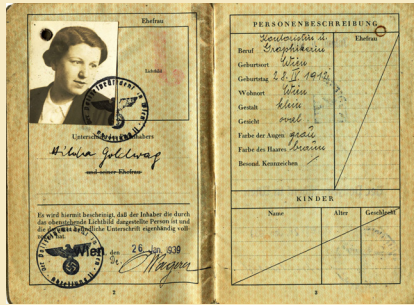 Ehefrau
Unterschrift des Inhabers
Goldwag
und seiner Ehefrau
Es wird hiermit bescheinigt, daß der Inhaber die durch
das obenstehende Lichtbild dargestellte Person ist und
die darunter befindliche Unterschrift eigenhändig voll-
zogen hat.
Wien, den 26. Jan. 1939
2
PERSONENBESCHREIBUNG
Ehefrau
Kontoristin u.
Beruf Graphikerin
Geburtsort Wien
Geburtstag 28. IV. 1912
Wohnort Wien
Gestalt klein
Gesicht oval
Farbe der Augen grau
Farbe des Haares braun
Besond. Kennzeichen /
KINDER
Name Alter Geschlecht